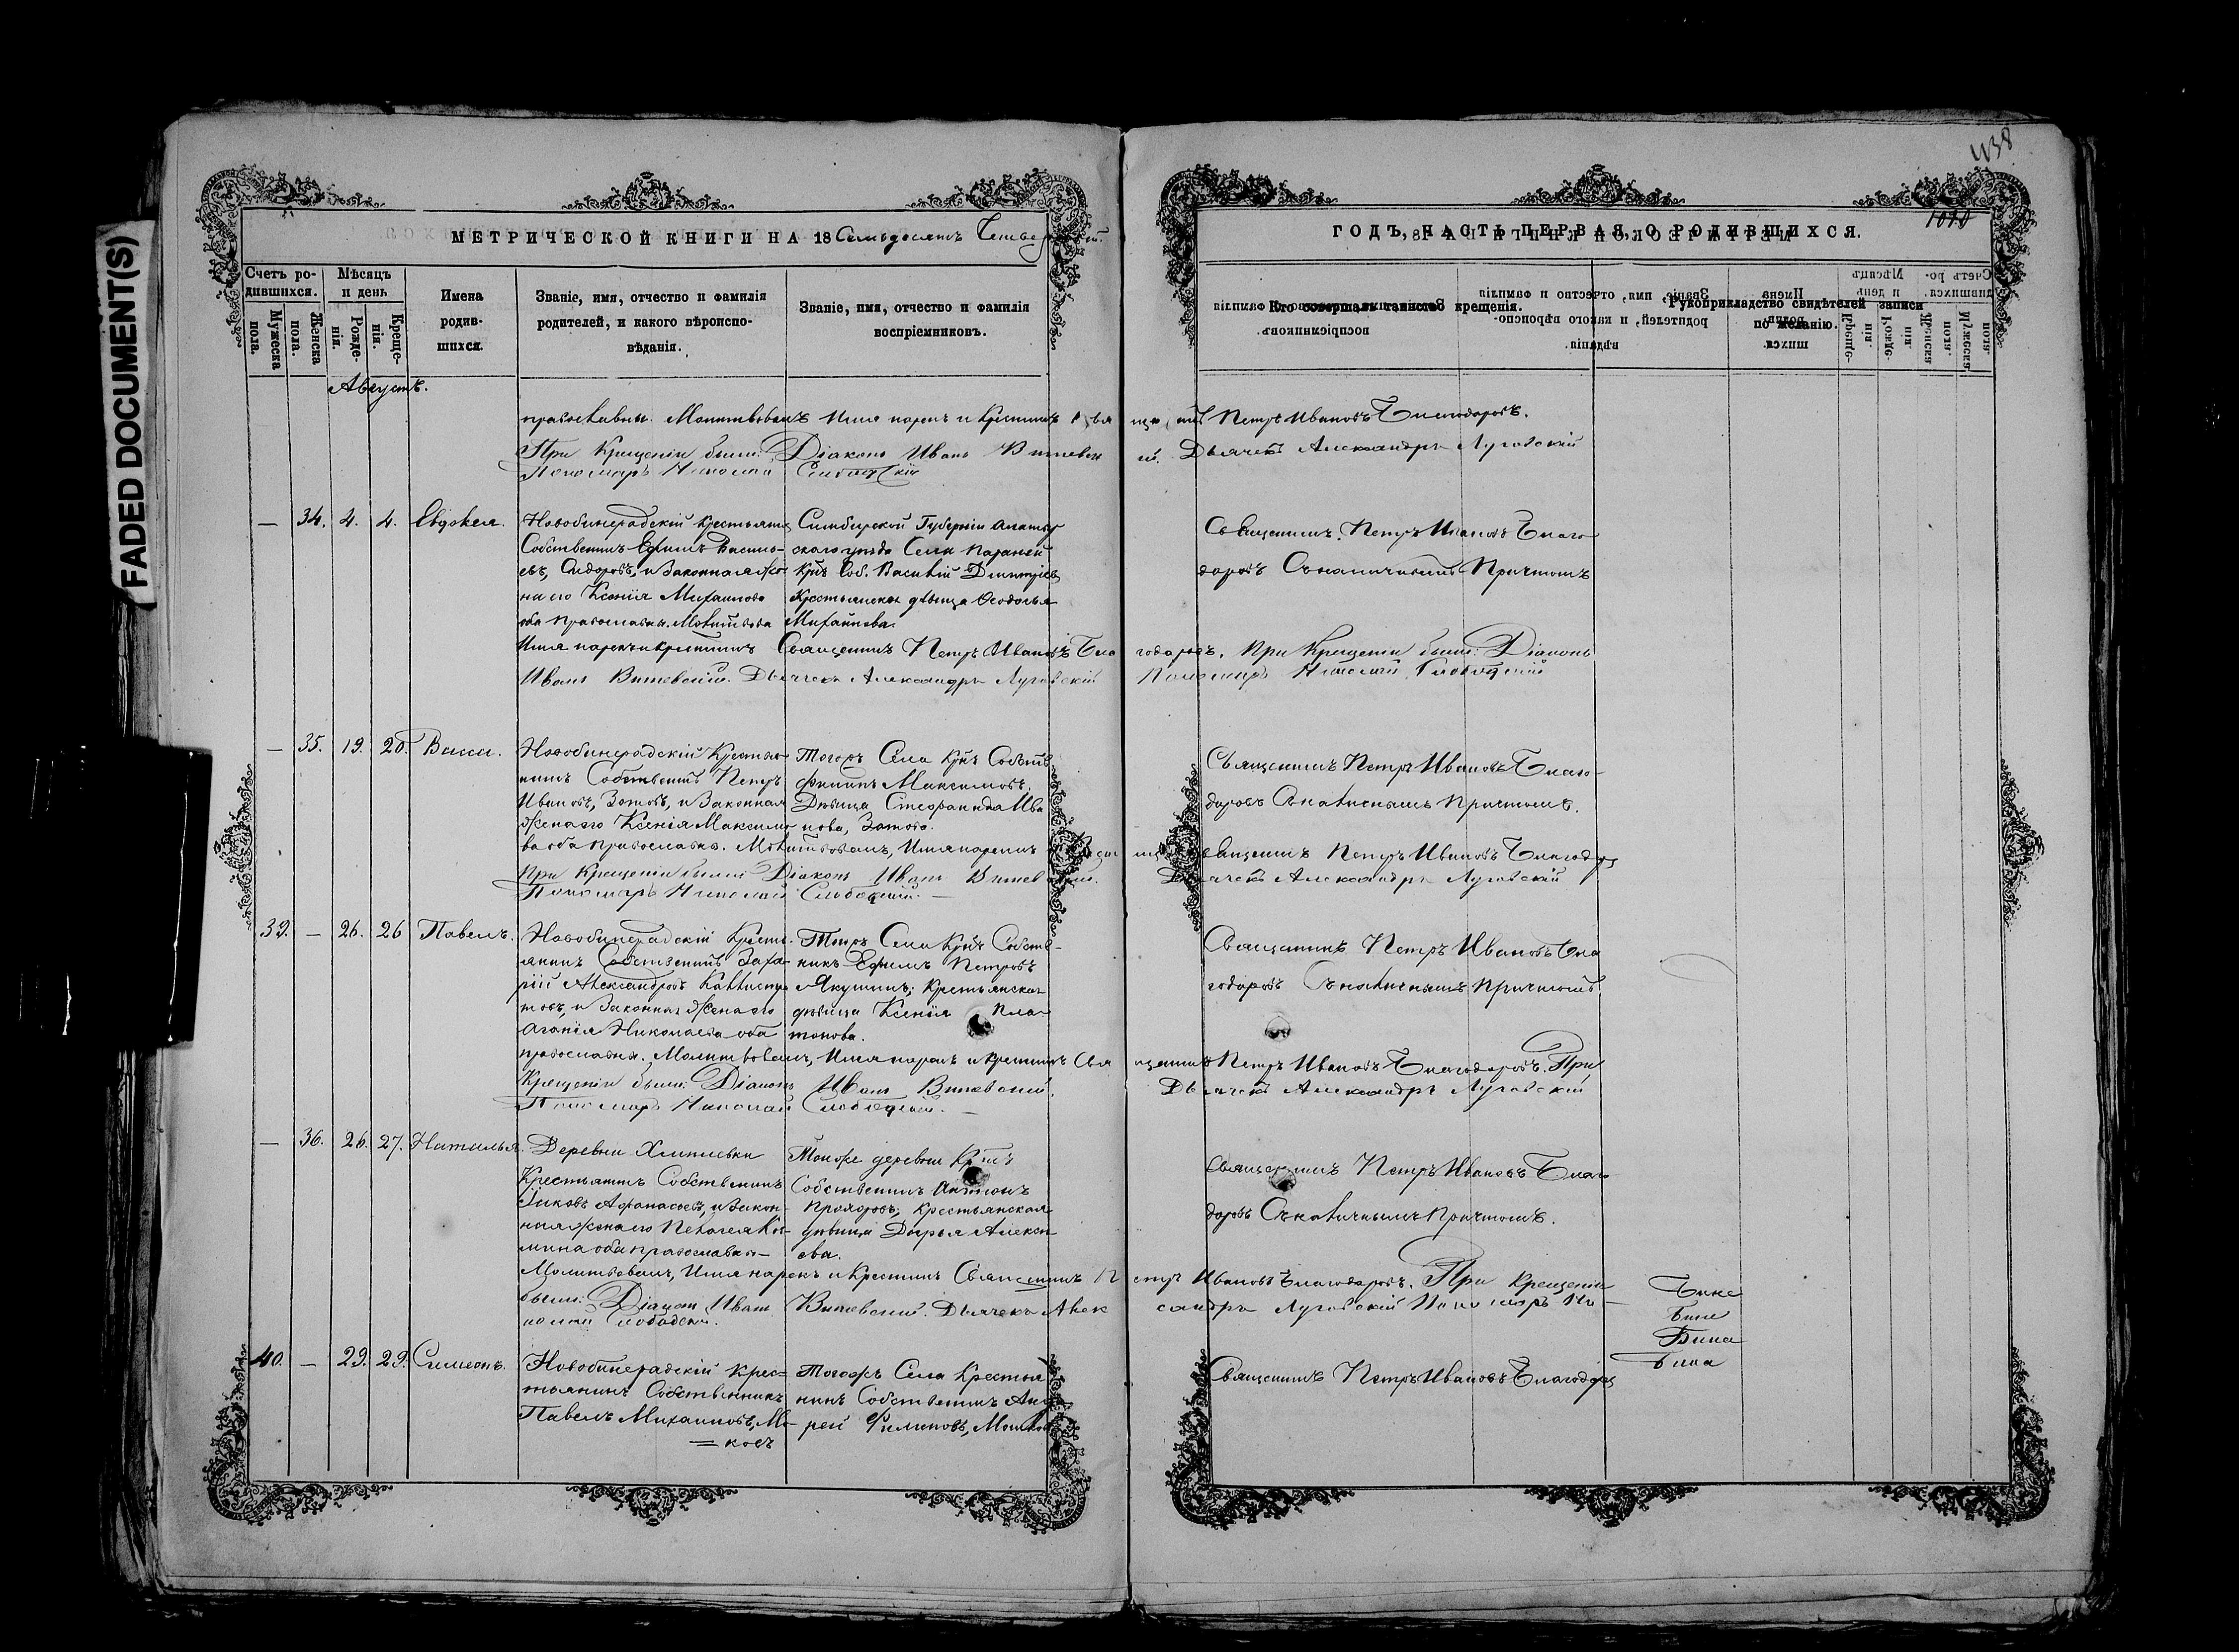 FADED DOCUMENT(S)
438
1010
МЕТРИЧЕСКОЙ КНИГИ НА 18 Семьдесятъ Четвертый.
ГОДЪ, ЧАСТЬ ПЕРВАЯ, О РОДИВШИХСЯ.
Счетъ родившихся.
Мужеска пола.
Женска пола.
Мѣсяцъ и день
Рожденія.
Крещенія.
Имена родившихся.
Званіе, имя, отчество и фамилія родителей, и какого вѣроисповѣданія.
Званіе, имя, отчество и фамилія воспріемниковъ.
Кто совершалъ таинство крещенія.
Рукоприкладство свидѣтелей записи по желанію.
Августъ.
православны. Молитвовалъ Имя нарекъ и Крестилъ Священникъ Петръ Ивановъ Благодаровъ.
При Крещеніи были: Діаконъ Иванъ Витевскій. Дьячекъ Александръ Луговскій
Пономарь Николай Слободскій
— 34. 4. 4. Евдокея.
Новобинарадскій Крестьянинъ
Собственникъ Ефимъ Василь-
евъ, Сидоровъ, и Законная Же-
на его Ксенія Михаилова
оба православны. Молитвова
Симбирской Губерніи Алатыр
скаго уѣзда Села
Крн Соб. Василій Дмитріевъ
Крестьянская дѣвица Ѳеодосья
Михайлова.
Священникъ Петръ Ивановъ Благо-
даровъ Съ наличнымъ Причтомъ
Имя нарекъ и крестилъ Священникъ Петръ Ивановъ Благодаровъ. При Крещеніи были: Діаконъ
Иванъ Витевскій. Дьячекъ Александръ Луговскій Пономарь Николай Слободскій
— 35. 19. 20. Васса.
Новобинарадскій Крестья-
нинъ Собственникъ Петръ
Ивановъ, Зотовъ, и Законная
Жена его Ксенія Максимо
Тогожъ Села Крн Собств
Филипъ Максимовъ.
Дѣвица Стефанида Ива
нова, Зотова.
Священникъ Петръ Ивановъ Благо-
даровъ Съ наличнымъ причтомъ.
ва оба православны. Молитвовалъ, Имя нарекъ Священникъ Петръ Ивановъ Благодар
При Крещеніи были: Діаконъ Иванъ Витевскій. Дьячекъ Александръ Луговскій
Пономарь Николай Слободскій. —
39. — 26. 26 Павелъ.
Новобинарадскій Кресть-
янинъ Собственникъ Заха-
рій Александровъ Каллист
товъ, и Законная Жена его
Агафія Николаева оба
Тогожъ Села Крнъ Собств-
никъ Ефимъ Петровъ
Якушинъ; Крестьянская
дѣвица Ксенія Пла-
тонова.
Священникъ Петръ Ивановъ Бла
годаровъ Съ наличнымъ Причтомъ
православны. Молитвовалъ, Имя нарекъ и крестилъ Священникъ Петръ Ивановъ Благодаровъ. При
Крещеніи были: Діаконъ Иванъ Витевскій. Дьячекъ Александръ Луговскій
Пономарь Николай Слободскій. —
— 36. 26. 27. Наталья.
Деревни
Крестьянинъ Собственникъ
Іаковъ Афанасьевъ, и Закон-
ная Жена его Пелагея Коз-
мина оба православны —
Тойже деревни Крнъ
Собственникъ Антонъ
Прохоровъ; Крестьянская
дѣвица Дарья Алексѣ
ева.
Священникъ Петръ Ивановъ Благо
даровъ Съ наличнымъ Причтомъ.
Молитвовалъ, Имя нарекъ и Крестилъ Священникъ Петръ Ивановъ Благодаровъ. При Крещеніи
были: Діаконъ Иванъ Витевскій. Дьячекъ Александръ Луговскій Пономарь Ни-
колай Слободскій.
40. — 29. 29. Симеонъ.
Новобинарадскій Крес=
тьянинъ Собственникъ
Павелъ Михаиловъ, Мо-
=ковъ
Тогожъ Села Крестья
нинъ Собственникъ Анд
рей Филиповъ, Мошков
Священникъ Петръ Ивановъ Благодар